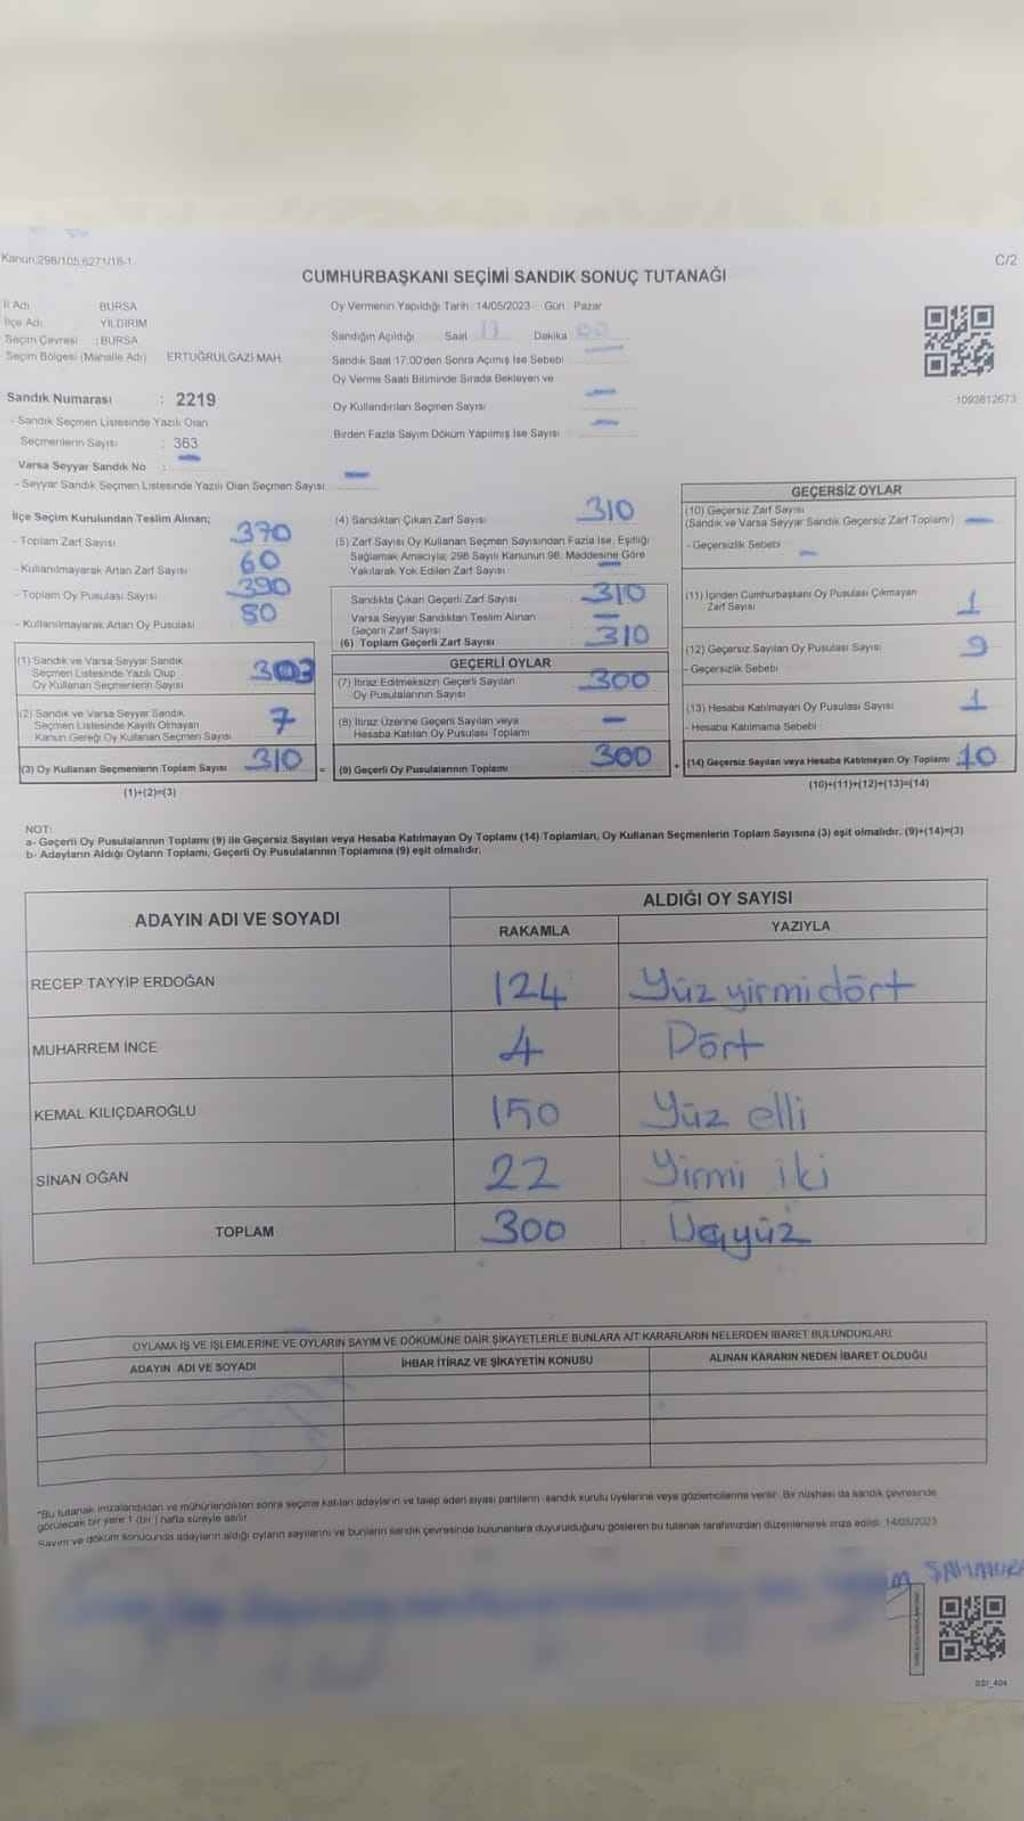 Kanun:298/105,6271/18-1
C/2
CUMHURBAŞKANI SEÇİMİ SANDIK SONUÇ TUTANAĞI
İl Adı : BURSA
İlçe Adı : YILDIRIM
Seçim Çevresi : BURSA
Seçim Bölgesi (Mahalle Adı) ERTUĞRULGAZİ MAH.
Sandık Numarası : 2219
- Sandık Seçmen Listesinde Yazılı Olan
Seçmenlerin Sayısı : 363
Varsa Seyyar Sandık No : —
- Seyyar Sandık Seçmen Listesinde Yazılı Olan Seçmen Sayısı —
Oy Vermenin Yapıldığı Tarih: 14/05/2023 Gün: Pazar
Sandığın Açıldığı Saat 17 Dakika 00
Sandık Saat 17:00'den Sonra Açılmış İse Sebebi —
Oy Verme Saati Bitiminde Sırada Bekleyen ve
Oy Kullandırılan Seçmen Sayısı —
Birden Fazla Sayım Döküm Yapılmış İse Sayısı —
1093812673
İlçe Seçim Kurulundan Teslim Alınan;
- Toplam Zarf Sayısı 370
- Kullanılmayarak Artan Zarf Sayısı 60
- Toplam Oy Pusulası Sayısı 390
- Kullanılmayarak Artan Oy Pusulası 80
(1) Sandık ve Varsa Seyyar Sandık
Seçmen Listesinde Yazılı Olup
Oy Kullanan Seçmenlerin Sayısı 303
(2) Sandık ve Varsa Seyyar Sandık
Seçmen Listesinde Kayıtlı Olmayan
Kanun Gereği Oy Kullanan Seçmen Sayısı 7
(3) Oy Kullanan Seçmenlerin Toplam Sayısı 310
(1)+(2)=(3)
(4) Sandıktan Çıkan Zarf Sayısı 310
(5) Zarf Sayısı Oy Kullanan Seçmen Sayısından Fazla İse, Eşitliği
Sağlamak Amacıyla; 298 Sayılı Kanunun 98. Maddesine Göre
Yakılarak Yok Edilen Zarf Sayısı —
Sandıkta Çıkan Geçerli Zarf Sayısı 310
Varsa Seyyar Sandıktan Teslim Alınan
Geçerli Zarf Sayısı —
(6) Toplam Geçerli Zarf Sayısı 310
GEÇERLİ OYLAR
(7) İtiraz Edilmeksizin Geçerli Sayılan
Oy Pusulalarının Sayısı 300
(8) İtiraz Üzerine Geçerli Sayılan veya
Hesaba Katılan Oy Pusulası Toplamı —
(9) Geçerli Oy Pusulalarının Toplamı 300
GEÇERSİZ OYLAR
(10) Geçersiz Zarf Sayısı
(Sandık ve Varsa Seyyar Sandık Geçersiz Zarf Toplamı) —
- Geçersizlik Sebebi —
(11) İçinden Cumhurbaşkanı Oy Pusulası Çıkmayan
Zarf Sayısı 1
(12) Geçersiz Sayılan Oy Pusulası Sayısı 9
- Geçersizlik Sebebi
(13) Hesaba Katılmayan Oy Pusulası Sayısı 1
- Hesaba Katılmama Sebebi
(14) Geçersiz Sayılan veya Hesaba Katılmayan Oy Toplamı 10
(10)+(11)+(12)+(13)=(14)
NOT:
a- Geçerli Oy Pusulalarının Toplamı (9) ile Geçersiz Sayılan veya Hesaba Katılmayan Oy Toplamı (14) Toplamları, Oy Kullanan Seçmenlerin Toplam Sayısına (3) eşit olmalıdır. (9)+(14)=(3)
b- Adayların Aldığı Oyların Toplamı, Geçerli Oy Pusulalarının Toplamına (9) eşit olmalıdır.
ADAYIN ADI VE SOYADI
ALDIĞI OY SAYISI
RAKAMLA YAZIYLA
RECEP TAYYİP ERDOĞAN 124 Yüz yirmi dört
MUHARREM İNCE 4 Dört
KEMAL KILIÇDAROĞLU 150 Yüz elli
SİNAN OĞAN 22 Yirmi iki
TOPLAM 300 Üçyüz
OYLAMA İŞ VE İŞLEMLERİNE VE OYLARIN SAYIM VE DÖKÜMÜNE DAİR ŞİKAYETLERLE BUNLARA AİT KARARLARIN NELERDEN İBARET BULUNDUKLARI
ADAYIN ADI VE SOYADI İHBAR İTİRAZ VE ŞİKAYETİN KONUSU ALINAN KARARIN NEDEN İBARET OLDUĞU
*Bu tutanak imzalandıktan ve mühürlendikten sonra seçime katılan adayların ve talep eden siyasi partilerin sandık kurulu üyelerine veya gözlemcilerine verilir. Bir nüshası da sandık çevresinde
görülecek bir yere 1 (bir) hafta süreyle asılır.
Sayım ve döküm sonucunda adayların aldığı oyların sayılarını ve bunların sandık çevresinde bulunanlara duyurulduğunu gösteren bu tutanak tarafımızdan düzenlenerek imza edildi. 14/05/2023